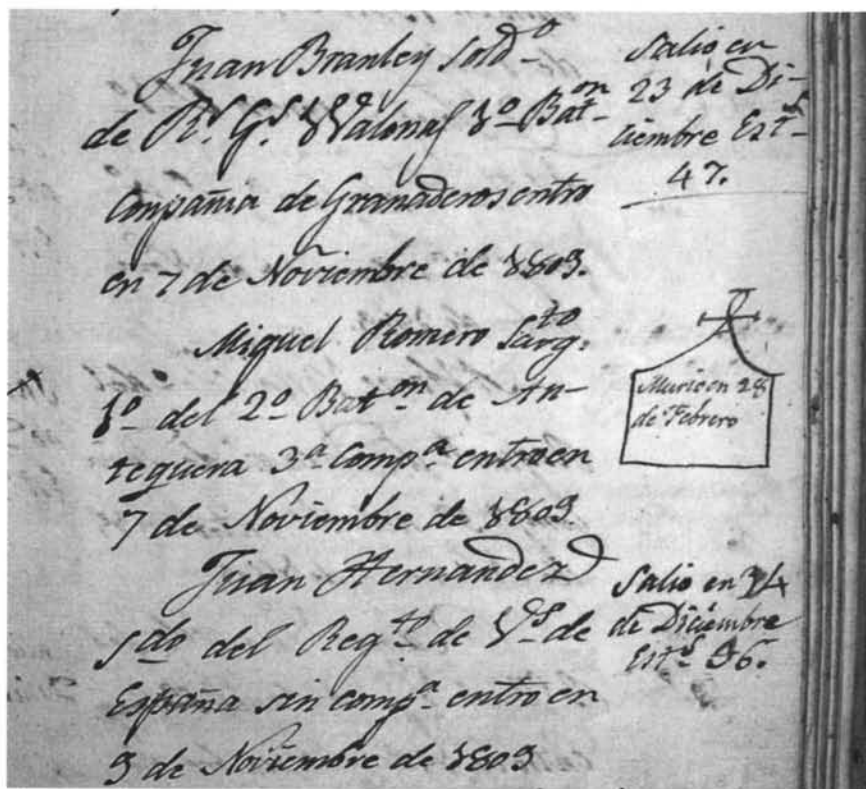 Juan Branley Sold.º
de R.s G.s Walonas 1º Bat.on
Compañia de Granaderos entro
en 7 de Noviembre de 1809.
Salio en
23 de Di-
ciembre Est.s
47.
Miguel Romero Sarg.to
1º del 2º Bat.on de An-
tequera 3ª Comp.ª entro en
7 de Noviembre de 1809.
Murio en 28
de Febrero
Juan Hernandez
sdo del Reg.to de V.s de
España sin comp.ª entro en
9 de Noviembre de 1809
Salio en 14
de Diciembre
Est.s 36.